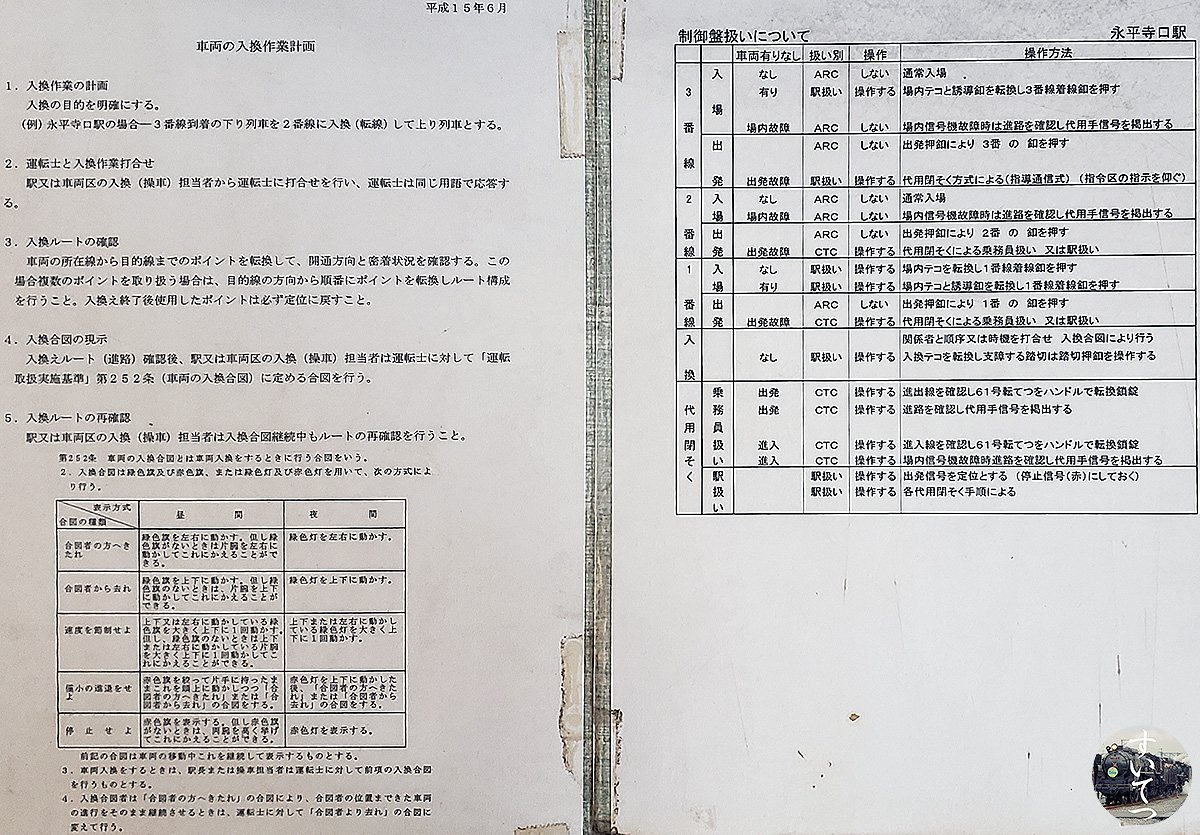 平成１５年６月
車両の入換作業計画
１．入換作業の計画
入換の目的を明確にする。
（例）永平寺口駅の場合―３番線到着の下り列車を２番線に入換（転線）して上り列車とする。
２．運転士と入換作業打合せ
駅又は車両区の入換（操車）担当者から運転士に打合せを行い、運転士は同じ用語で応答す
る。
３．入換ルートの確認
車両の所在線から目的線までのポイントを転換して、開通方向と密着状況を確認する。この
場合複数のポイントを取り扱う場合は、目的線の方向から順番にポイントを転換しルート構成
を行うこと。入換え終了後使用したポイントは必ず定位に戻すこと。
４．入換合図の現示
入換えルート（進路）確認後、駅又は車両区の入換（操車）担当者は運転士に対して「運転
取扱実施基準」第２５２条（車両の入換合図）に定める合図を行う。
５．入換ルートの再確認
駅又は車両区の入換（操車）担当者は入換合図継続中もルートの再確認を行うこと。
第２５２条　車両の入換合図とは車両入換をするときに行う合図をいう。
２．入換合図は緑色旗及び赤色旗、または緑色灯及び赤色灯を用いて、次の方式によ
り行う。
表示方式
合図の種類
昼　間
夜　間
合図者の方へき
たれ
緑色旗を左右に動かす。但し緑
色旗がないときは片腕を左右に
動かしてこれにかえることがで
きる。
緑色灯を左右に動かす。
合図者から去れ
緑色旗を上下に動かす。但し緑
色旗のないときは、片腕を上下
に動かしてこれにかえることが
できる。
緑色灯を上下に動かす。
速度を節制せよ
上下又は左右に動かしている緑
色旗を大きく上下に１回動かす。
但し、緑色旗のないときは上下
または左右に動かしている片腕
を大きく上下に１回動かしてこ
れにかえることができる。
上下または左右に動かし
ている緑色灯を大きく上
下に１回動かす。
僅小の進退をせ
よ
赤色旗を絞って片手に持ったま
まこれを頭上に動かしつつ「合
図者の方へきたれ」または「合
図者から去れ」の合図をする。
赤色灯を上下に動かした
後、「合図者の方へきた
れ」または「合図者から
去れ」の合図をする。
停止せよ
赤色旗を表示する。但し赤色旗
がないときは、両腕を高く挙げ
てこれにかえることができる。
赤色灯を表示する。
前記の合図は車両の移動中これを継続して表示するものとする。
３．車両入換をするときは、駅長または操車担当者は運転士に対して前項の入換合図
を行うものとする。
４．入換合図者は「合図者の方へきたれ」の合図により、合図者の位置まできた車両
の進行をそのまま継続させるときは、運転士に対して「合図者より去れ」の合図に
変えて行う。
制御盤扱いについて　永平寺口駅
車両有りなし　扱い別　操作　操作方法
３番線　入場　なし　ARC　しない　通常入場
有り　駅扱い　操作する　場内テコと誘導釦を転換し３番線着線釦を押す
場内故障　ARC　しない　場内信号機故障時は進路を確認し代用手信号を掲出する
出発　ARC　しない　出発押釦により　３番　の　釦を押す
出発故障　駅扱い　操作する　代用閉そく方式による（指導通信式）（指令区の指示を仰ぐ）
２番線　入場　なし　ARC　しない　通常入場
場内故障　ARC　しない　場内信号機故障時は進路を確認し代用手信号を掲出する
出発　ARC　しない　出発押釦により　２番　の　釦を押す
出発故障　CTC　操作する　代用閉そくによる乗務員扱い　又は駅扱い
１番線　入場　なし　駅扱い　操作する　場内テコを転換し１番線着線釦を押す
有り　駅扱い　操作する　場内テコと誘導釦を転換し１番線着線釦を押す
出発　ARC　しない　出発押釦により　１番　の　釦を押す
出発故障　CTC　操作する　代用閉そくによる乗務員扱い　又は駅扱い
入換　関係者と順序又は時機を打合せ　入換合図により行う
なし　駅扱い　操作する　入換テコを転換し支障する踏切は踏切押釦を操作する
代用閉そく　乗務員扱い　出発　CTC　操作する　進出線を確認し６１号転てつをハンドルで転換鎖錠
出発　CTC　操作する　進路を確認し代用手信号を掲出する
進入　CTC　操作する　進入線を確認し６１号転てつをハンドルで転換鎖錠
進入　CTC　操作する　場内信号機故障時進路を確認し代用手信号を掲出する
駅扱い　駅扱い　操作する　出発信号を定位とする　（停止信号（赤）にしておく）
駅扱い　操作する　各代用閉そく手順による
すいてつ